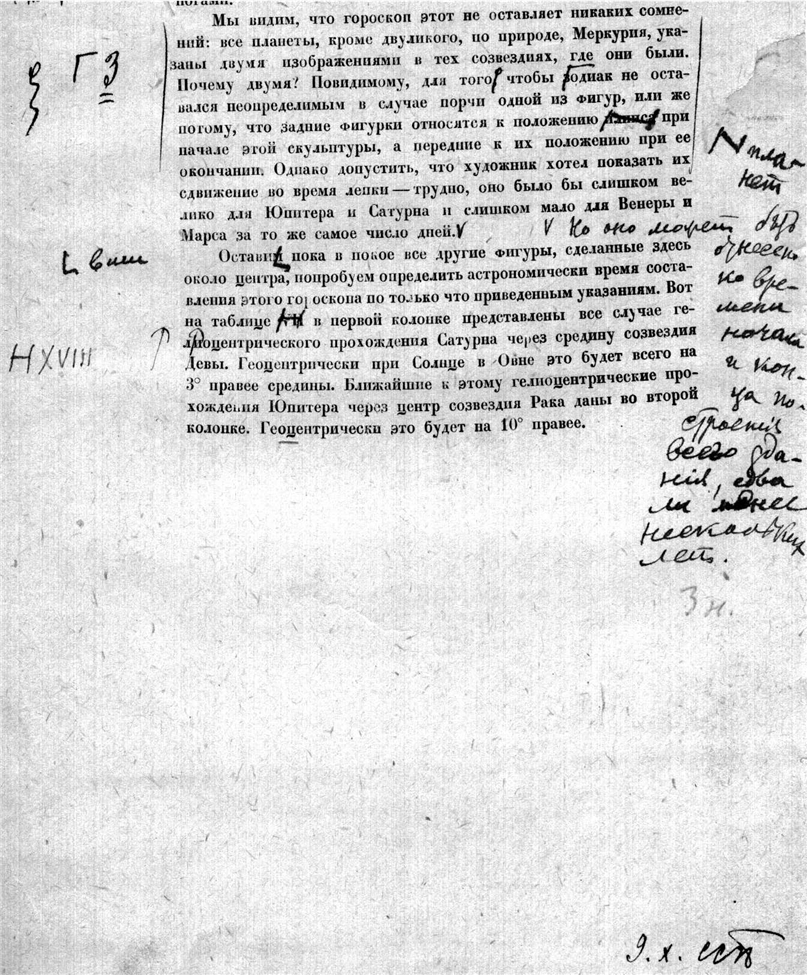 ногами.
Мы видим, что гороскоп этот не оставляет никаких сомне-
ний: все планеты, кроме двуликого, по природе, Меркурия, ука-
заны двумя изображениями в тех созвездиях, где они были.
Почему двумя? Повидимому, для того чтобы зодиак не оста-
вался неопределимым в случае порчи одной из фигур, или же
потому, что задние фигурки относятся к положению при
начале этой скульптуры, а передние к их положению при ее
окончании. Однако допустить, что художник хотел показать их
сдвижение во время лепки — трудно, оно было бы слишком ве-
лико для Юпитера и Сатурна и слишком мало для Венеры и
Марса за то же самое число дней.
Оставив пока в покое все другие фигуры, сделанные здесь
около центра, попробуем определить астрономически время соста-
вления этого гороскопа по только что приведенным указаниям. Вот
на таблице в первой колонке представлены все случае ге-
лиоцентрического прохождения Сатурна через средину созвездия
Девы. Геоцентрически при Солнце в Овне это будет всего на
3° правее средины. Ближайшие к этому гелиоцентрические про-
хождения Юпитера через центр созвездия Рака даны во второй
колонке. Геоцентрически это будет на 10° правее.
Г З
в ши
Н XVIII
пла-
нет
Но оно может быть
отнесено
ко вре-
мени
начала
и кон-
ца по-
строенія
всего зда-
нія, едва
ли менее
нескольких
лет.
3 н.
9. х. есть